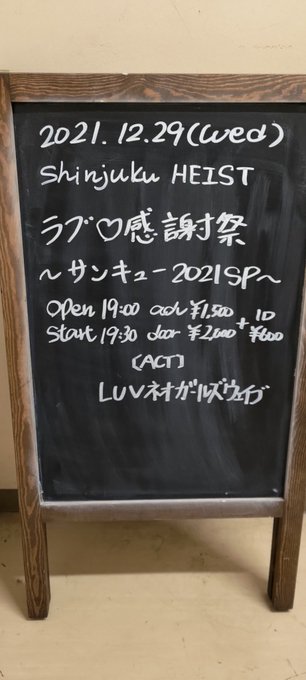 2021.12.29(Wed)
Shinjuku HEIST
ラブ♡感謝祭
～サンキュー2021SP～
open 19:00 adv ¥1,500 + 1D ¥600
start 19:30 door ¥2,000
[ACT]
LUVネオガールズウェイブ